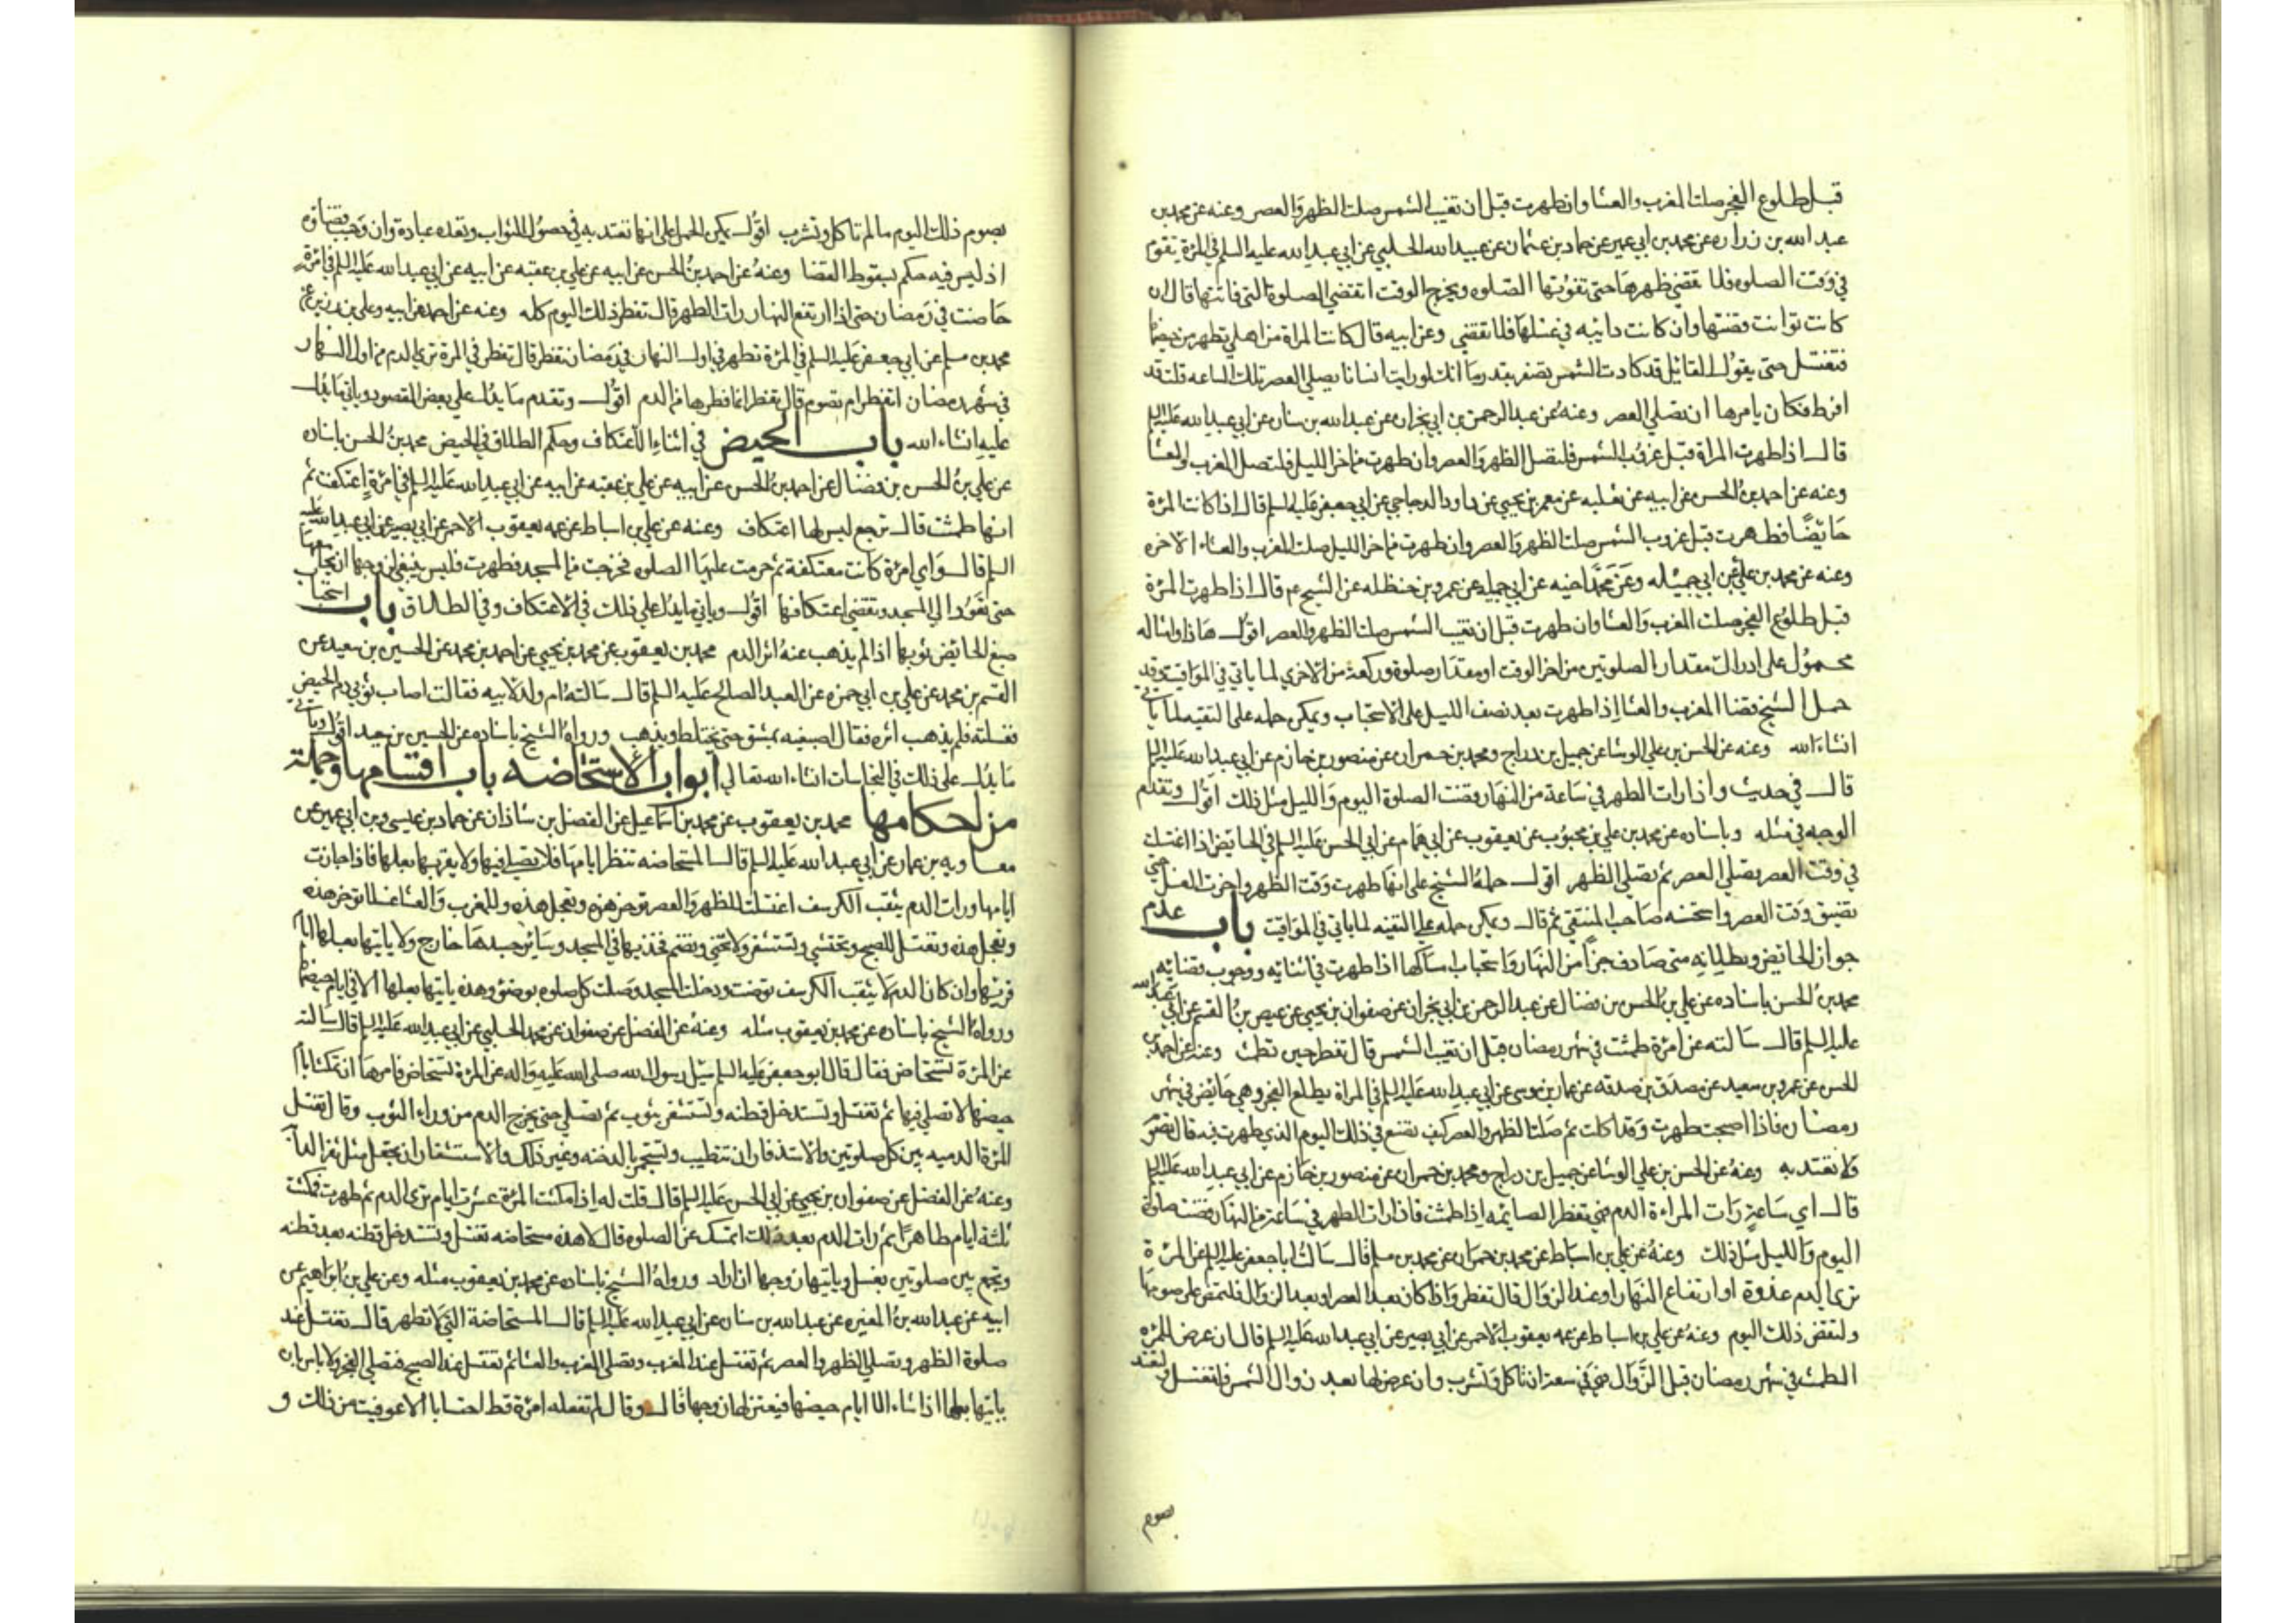 قبل طلوع الفجر صلت المغرب والعشا وان طهرت قبل ان تغيب الشمس صلت الظهر والعصر وعنه عن محمد بن
عبد الله بن زراره عن محمد بن ابي عمير عن حماد بن عثمان عن عبيد الله الحلبي عن ابي عبد الله عليه السلم في المرأة تقوم
في وقت الصلوه فلا تقضي ظهرها حتى تفوتها الصلوه ويخرج الوقت اتقضي الصلوة التي فاتتها قال ان
كانت توانت قضتها وان كانت دائبه في غسلها فلا تقضي وعن ابيه قال كانت المراة من اهلي تطهر من حيضها
فتغتسل حتى يقول القائل قد كادت الشمس تصفر بقدر ما انك لو رايت انسانا يصلي العصر تلك الساعه قلت قد
افرط فكان يامرها ان تصلي العصر وعنه عن عبد الرحمن بن ابي نجران عن عبد الله بن سنان عن ابي عبد الله عليه السلم
قال اذا طهرت المراة قبل غروب الشمس فلتصل الظهر والعصر وان طهرت من اخر الليل فلتصل المغرب والعشا
وعنه عن احمد بن الحسن عن ابيه عن ثعلبه عن معمر بن يحيى عن داود الدجاجي عن ابي جعفر عليه السلم قال اذا كانت المرأة
حايضا فطهرت قبل غروب الشمس صلت الظهر والعصر وان طهرت من اخر الليل صلت المغرب والعشاء الاخره
وعنه عن محمد بن علي عن ابي جميله وعن محمد اخيه عن ابي جميله عن عمر بن حنظله عن الشيخ ع م قال اذا طهرت المرأة
قبل طلوع الفجر صلت المغرب والعشا وان طهرت قبل ان تغيب الشمس صلت الظهر والعصر اقول هذا وامثاله
محمول على ادراك مقدار الصلوتين من اخر الوقت او مقدار صلوة وركعة من الاخري لما ياتي في المواقيت وقد
حمل الشيخ قضا المغرب والعشا اذا طهرت بعد نصف الليل على الاستحباب ويمكن حمله على التقيه لما ياتي
انشاء الله وعنه عن الحسن بن علي الوشا عن جميل بن دراج ومحمد بن حمران عن منصور بن حازم عن ابي عبد الله عليه السلم
قال في حديث واذا رات الطهر في ساعة من النهار قضت الصلوة اليوم والليل مثل ذلك اقول وتقدم
الوجه في مثله وباسناده عن محمد بن علي بن محبوب عن يعقوب عن ابي همام عن ابي الحسن عليه السلم في الحايض اذا اغتسلت
في وقت العصر تصلي العصر ثم تصلي الظهر اقول حمله الشيخ على انها طهرت وقت الظهر واخرت الغسل حتى
تضيق وقت العصر واستحسنه صاحب المنتقي ثم قال ويمكن حمله على التقيه لما ياتي في المواقيت باب عدم
جواز الحائض وبطلانه متى صادف جزأ من النهار واستحباب امساكها اذا طهرت في اثنائه ووجوب قضائه
محمد بن الحسن باسناده عن علي بن الحسن بن فضال عن عبد الرحمن بن ابي نجران عن صفوان بن يحيى عن عيص بن القسم عن ابي عبد الله
عليه السلم قال سالته عن امرأة طمثت في شهر رمضان قبل ان تغيب الشمس قال تفطر حين تطمث وعنه عن احمد بن
الحسن عن عمرو بن سعيد عن مصدق بن صدقه عن عمار بن موسى عن ابي عبد الله عليه السلم في المراة يطلع الفجر وهي حائض في شهر
رمضان فاذا اصبحت طهرت وقد اكلت ثم صلت الظهر والعصر كيف تصنع في ذلك اليوم الذي طهرت فيه قال تصوم
ولا تعتد به وعنه عن الحسن بن علي الوشا عن جميل بن دراج ومحمد بن حمران عن منصور بن حازم عن ابي عبد الله عليه السلم
قال اي ساعة رات المراءة الدم فهي تفطر الصايمه اذا طمثت فاذا رات الطهر في ساعة من النهار قضت صلوة
اليوم والليل مثل ذلك وعنه عن علي بن اسباط عن محمد بن حمران عن محمد بن مسلم قال سالت ابا جعفر عليه السلم عن المرأة
ترى الدم غدوة او ارتفاع النهار او عند الزوال قال تفطر واذا كان بعد العصر او بعد الزوال فلتمض على صومها
ولتقض ذلك اليوم وعنه عن علي بن اسباط عن عمه يعقوب الاحمر عن ابي بصير عن ابي عبد الله عليه السلم قال ان عرض للمرأة
الطمث في شهر رمضان قبل الزوال فهي في سعة ان تاكل وتشرب وان عرض لها بعد زوال الشمس فلتغتسل ولتعتد
بصوم
بصوم ذلك اليوم ما لم تاكل وتشرب اقول يمكن الحمل على انها تعتد به في حصول الثواب وتعده عبادة وان وجب قضاؤه
اذ ليس فيه حكم بسقوط القضا وعنه عن احمد بن الحسن عن ابيه عن علي بن عقبه عن ابيه عن ابي عبد الله عليه السلم في امرأة
حاضت في رمضان حتى اذا ارتفع النهار رات الطهر قال تفطر ذلك اليوم كله وعنه عن احمد عن ابيه وعلي بن
محمد بن مسلم عن ابي جعفر عليه السلم في المرأة تطهر في اول النهار في رمضان تفطر قال تفطر في المرأة ترى الدم من اول النهار
في شهر رمضان اتفطر ام تصوم قال تفطر انما فطرها من الدم اقول وتقدم ما يدل على بعض المقصود وياتي ما يدل
عليه انشاء الله باب الحيض في اثناء الاعتكاف وحكم الطلاق في الحيض محمد بن الحسن باسناده
عن علي بن الحسن بن فضال عن احمد بن الحسن عن ابيه عن علي بن عقبه عن ابيه عن ابي عبد الله عليه السلم في امرأة اعتكفت ثم
انها طمثت قال ترجع ليس لها اعتكاف وعنه عن علي بن اسباط عن عمه يعقوب الاحمر عن ابي بصير عن ابي عبد الله عليه
السلم قال واي امرأة كانت معتكفة ثم حرمت عليها الصلوه فخرجت من المسجد فطهرت فليس ينبغي لزوجها ان يجامعها
حتى تعود الى المسجد وتقضي اعتكافها اقول وياتي ما يدل على ذلك في الاعتكاف وفي الطلاق باب استحباب
صبغ الحائض ثوبها اذا لم يذهب عنه اثر الدم محمد بن يعقوب عن محمد بن يحيى عن احمد بن محمد عن الحسين بن سعيد عن
القسم بن محمد عن علي بن ابي حمزه عن العبد الصالح عليه السلم قال سالته ام ولد لابيه فقالت اصاب ثوبي دم الحيض
فغسلته فلم يذهب اثره فقال اصبغيه بمشق حتى يختلط ويذهب ورواه الشيخ باسناده عن الحسين بن سعيد اقول وياتي
ما يدل على ذلك في النجاسات انشاء الله تعالي ابواب الاستحاضه باب اقسامها وجملة
من احكامها محمد بن يعقوب عن محمد بن اسماعيل عن الفضل بن شاذان عن حماد بن عيسى وبن ابي عمير عن
معاويه بن عمار عن ابي عبد الله عليه السلم قال المستحاضه تنظر ايامها فلا تصلي فيها ولا يقربها بعلها فاذا جازت
ايامها ورات الدم يثقب الكرسف اغتسلت للظهر والعصر توخر هذه وتعجل هذه وللمغرب والعشا غسلا توخر هذه
وتعجل هذه وتغتسل للصبح وتحتشي وتستثفر ولا تحني وتضم فخذيها في المسجد وسائر جسدها خارج ولا ياتيها بعلها ايام
قرئها وان كان الدم لا يثقب الكرسف توضت ودخلت المسجد وصلت كل صلوه بوضؤ وهذه ياتيها بعلها الا في ايام حيضها
ورواه الشيخ باسناده عن محمد بن يعقوب مثله وعنه عن الفضل عن صفوان عن محمد الحلبي عن ابي عبد الله عليه السلم قال سالته
عن المرأة تستحاض فقال قال ابو جعفر عليه السلم سئل رسول الله صلى الله عليه واله عن المرأة تستحاض فامرها ان تمكث ايام
حيضها لا تصلي فيها ثم تغتسل وتستدخل قطنه وتستثفر بثوب ثم تصلي حتى يخرج الدم من وراء الثوب وقال تغتسل
المرأة الدميه بين كل صلوتين والاستذفار ان تتطيب وتستجمر بالدخنه وغير ذلك والاستثفار ان تجعل مثل ثفر الدابة
وعنه عن الفضل عن صفوان بن يحيى عن ابي الحسن عليه السلم قال قلت له اذا مكثت المرأة عشرة ايام ترى الدم ثم طهرت فمكثت
ثلثة ايام طاهرا ثم رات الدم بعد ذلك اتمسك عن الصلوه قال لا هذه مستحاضه تغتسل وتستدخل قطنه بعد قطنه
وتجمع بين صلوتين بغسل وياتيها زوجها ان اراد ورواه الشيخ باسناده عن محمد بن يعقوب مثله وعن علي بن ابراهيم عن
ابيه عن عبد الله بن المغيره عن عبد الله بن سنان عن ابي عبد الله عليه السلم قال المستحاضة التي لا تطهر قال تغتسل عند
صلوة الظهر وتصلي الظهر والعصر ثم تغتسل عند المغرب وتصلي المغرب والعشا ثم تغتسل عند الصبح فتصلي الفجر ولا باس ان
ياتيها بعلها اذا شاء الا ايام حيضها فيعتزلها زوجها قال وقال لم تفعله امرأة قط احتسابا الا عوفيت من ذلك و